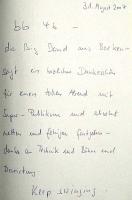 31. August 2007
bb 46 -
die Big Band aus Becken-
sagt ein herzliches Dankeschön
für einen tollen Abend mit
Super-Publikum und absolut
netten und fähigen Gastgebern -
danke an Technik und Bühne und
Bewirtung
Keep swinging -